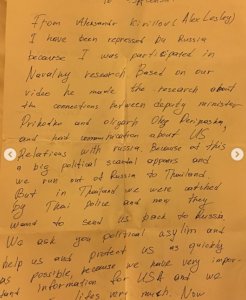 From Aleksandr Kirillov (Alex Lesley)
I have been repressed by Russia
because I was participated in
Navalny research. Based on our
video he made the research about
the connections between deputy minister
Prihodko and oligarh Oleg Deripaska,
and had communication about US
Relations with russia. Because of this
a big political scandal appears and
we run out of Russia to Thailand.
But in Thailand we were catched
by Thai police and now they
want to send us back to Russia.
We ask you political asylim and
help us and protect us as quickly
as possible, because we have very impor-
tant information for USA and we
lifes very much. Now